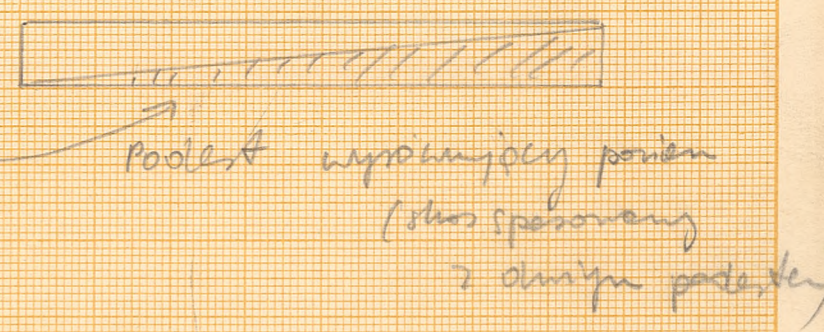 Podest wyrównujący poziom
(skos spasowany
z dużym podestem)